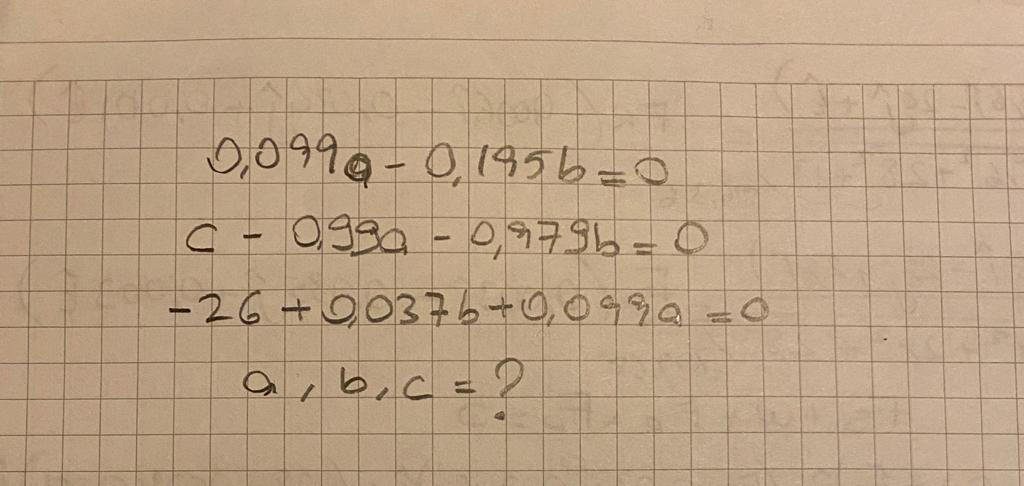 0,099a - 0,195b = 0
c - 0,99a - 0,979b = 0
-26 + 0,037b + 0,099a = 0
a, b, c = ?